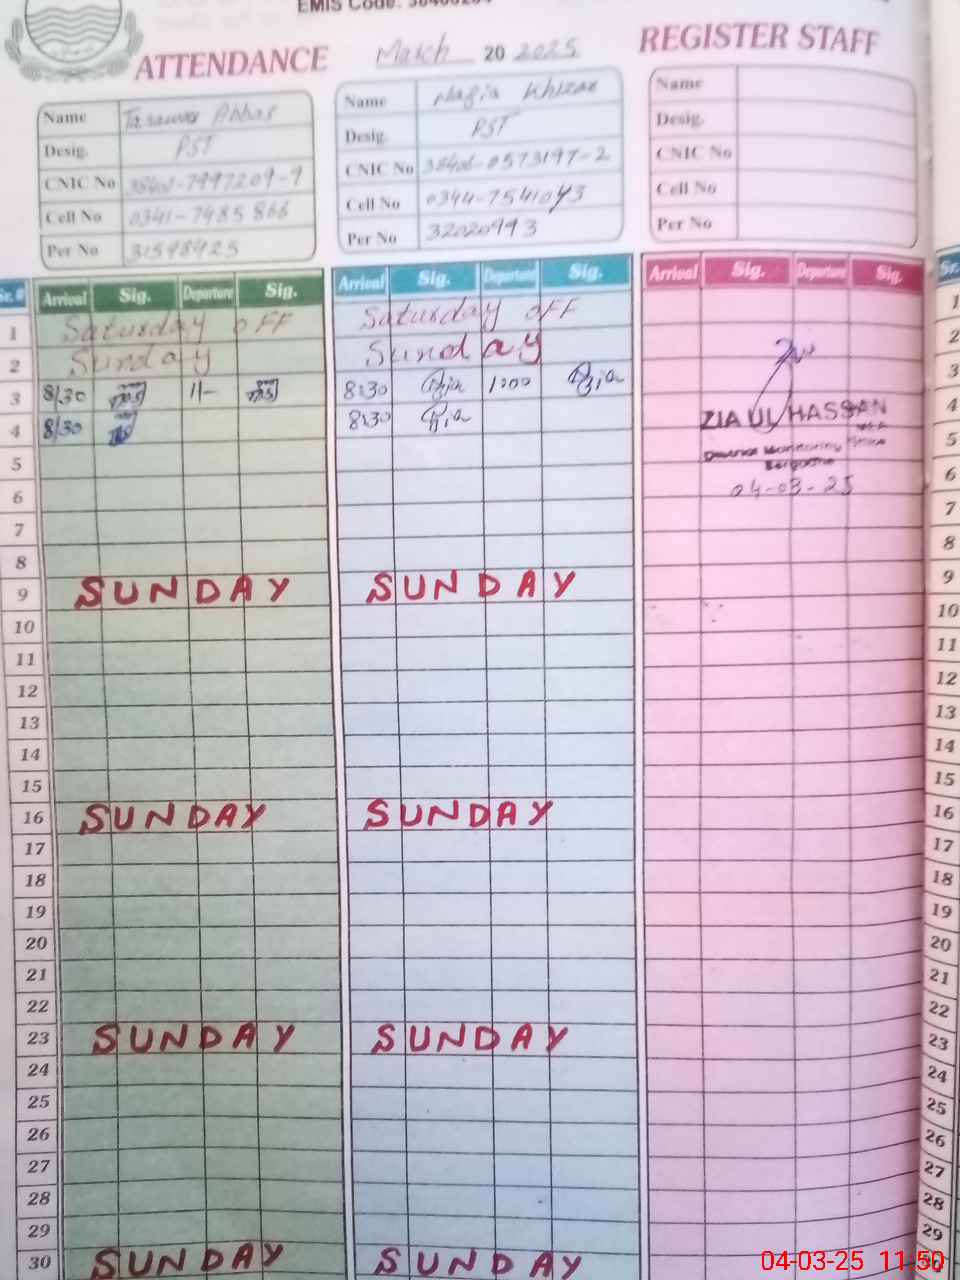 EMIS Code:
ATTENDANCE March 20 2025 REGISTER STAFF
Name Tasawar Abbas
Desig. PST
CNIC No 38401-7997209-9
Cell No 0341-7485866
Per No 31598925
Name Nazia Khizar
Desig. PST
CNIC No 38406-0573197-2
Cell No 0344-7541043
Per No 32020993
Name
Desig.
CNIC No
Cell No
Per No
Sr. # Arrival Sig. Departure Sig. Arrival Sig. Departure Sig. Arrival Sig. Departure Sig. Sr.
1 Saturday off Saturday off 1
2 Sunday Sunday 2
3 8/30 11- 8:30 1:00 3
4 8/30 8:30 4
ZIA UL HASSAN
5 5
District Monitoring Officer
Sargodha
6 6
04-03-25
7 7
8 8
9 SUNDAY SUNDAY 9
10 10
11 11
12 12
13 13
14 14
15 15
16 SUNDAY SUNDAY 16
17 17
18 18
19 19
20 20
21 21
22 22
23 SUNDAY SUNDAY 23
24 24
25 25
26 26
27 27
28 28
29 29
30 SUNDAY SUNDAY
04-03-25 11:50